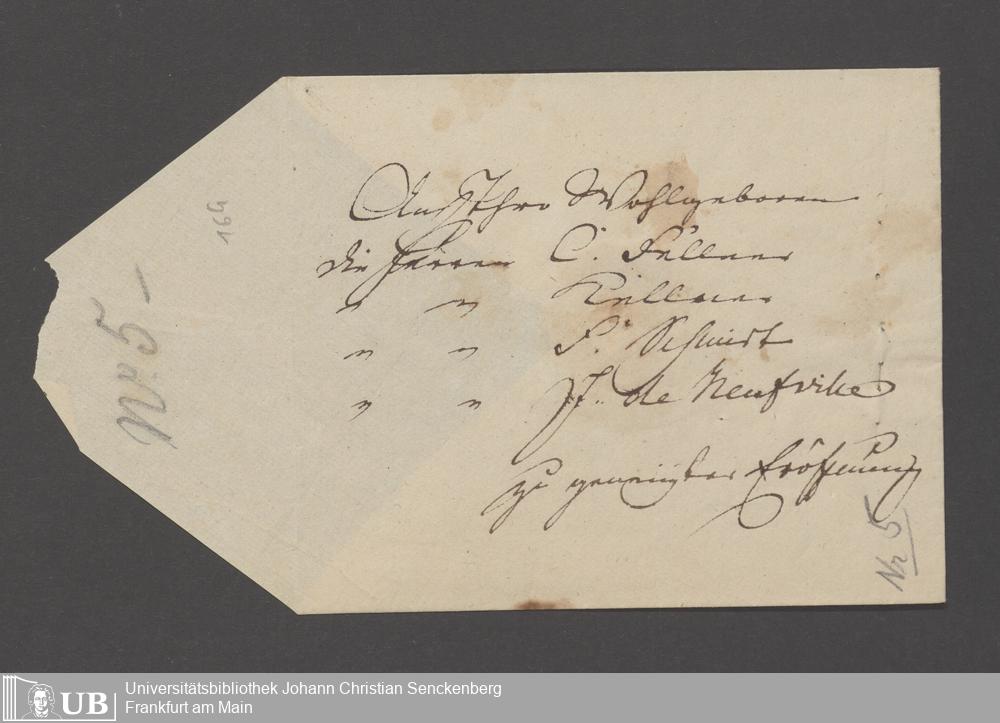 An Ihro Wohlgeboren
die Herren C. Fellner
" " Kellner
" " F. Schmidt
" " de Neufville
zu geneigter Eröffnung
Nr 5
No 5 –
169
UB Universitätsbibliothek Johann Christian Senckenberg
Frankfurt am Main